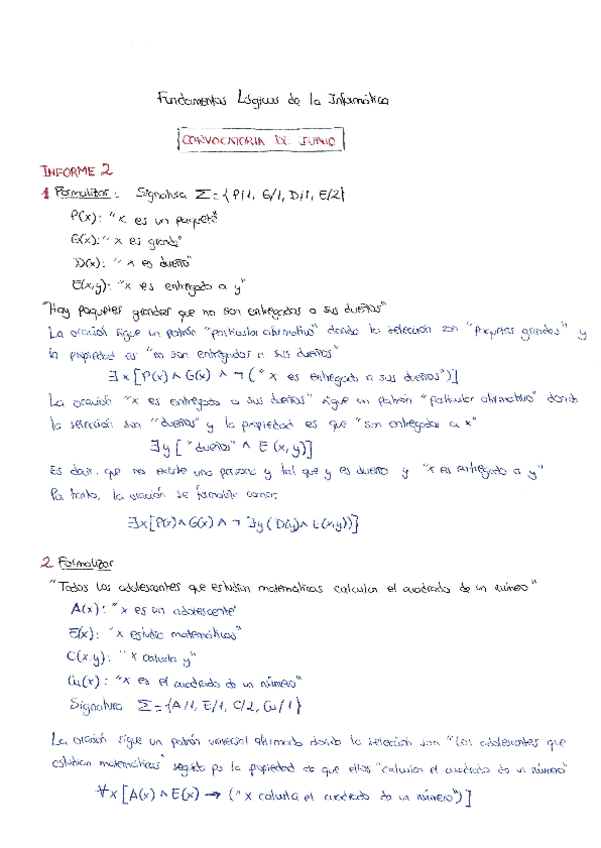 Fundamentos Lógicos de la Informática
CONVOCATORIA DE JUNIO
INFORME 2
1 Formalizar: Signatura Σ = {P/1, G/1, D/1, E/2}
P(x): "x es un paquete"
G(x): "x es grande"
D(x): "x es dueño"
E(x,y): "x es entregado a y"
"Hay paquetes grandes que no son entregados a sus dueños"
La oración sigue un patrón "particular afirmativo" donde la selección son "paquetes grandes" y
la propiedad es "no son entregados a sus dueños"
∃x[P(x) ∧ G(x) ∧ ¬("x es entregado a sus dueños")]
La oración "x es entregado a sus dueños" sigue un patrón "particular afirmativo" donde
la selección son "dueños" y la propiedad es que "son entregados a x"
∃y["dueños" ∧ E(x,y)]
Es decir, que no existe una persona y tal que y es dueño y "x es entregado a y"
Por tanto, la oración se formaliza como:
∃x[P(x) ∧ G(x) ∧ ¬∃y(D(y) ∧ E(x,y))]
2 Formalizar
"Todos los adolescentes que estudian matemáticas calculan el cuadrado de un número"
A(x): "x es un adolescente"
E(x): "x estudia matemáticas"
C(x,y): "x calcula y"
Cu(x): "x es el cuadrado de un número"
Signatura Σ = {A/1, E/1, C/2, Cu/1}
La oración sigue un patrón universal afirmado donde la selección son "los adolescentes que
estudian matemáticas" seguido por la propiedad de que ellos "calculan el cuadrado de un número"
∀x[A(x) ∧ E(x) → ("x calcula el cuadrado de un número")]